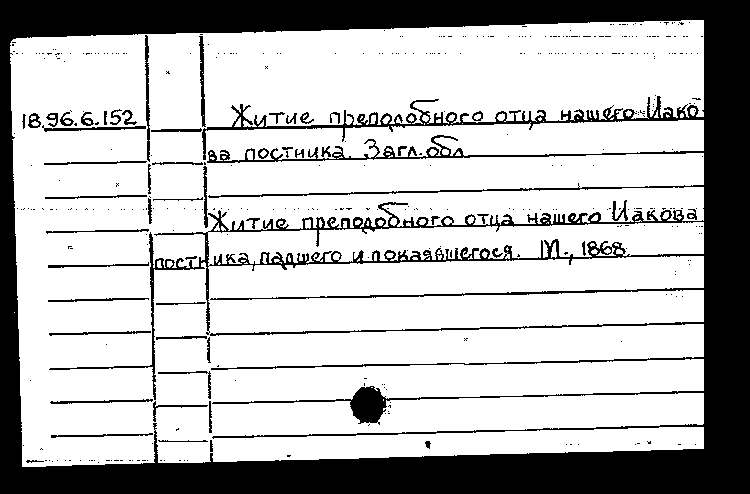 18.96.6.152 Житие преподобного отца нашего Иако-
ва постника. Загл. обл.
Житие преподобного отца нашего Иакова
постника, падшего и покаявшегося. М., 1868